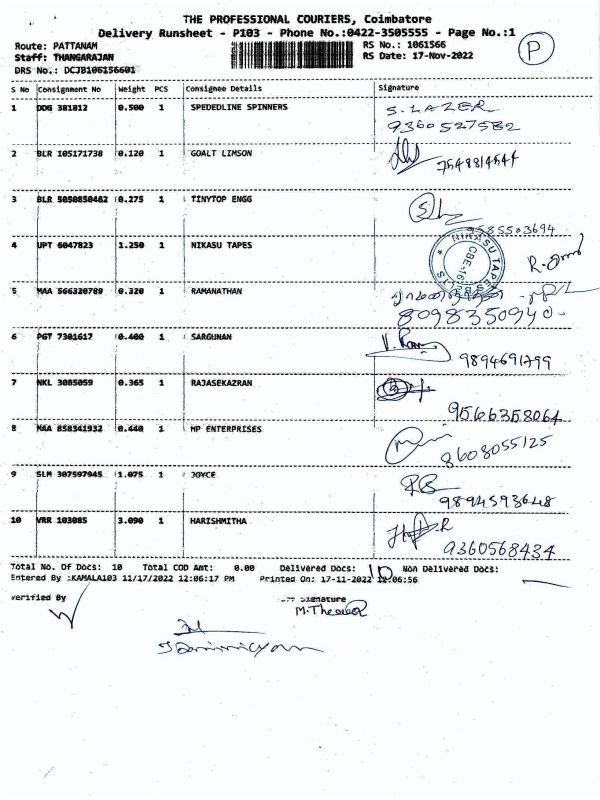 THE PROFESSIONAL COURIERS, Coimbatore
Delivery Runsheet - P103 - Phone No.:0422-3505555 - Page No.:1
Route: PATTANAM RS No.: 1061566 P
Staff: THANGARAJAN RS Date: 17-Nov-2022
DRS No.: DCJB106156601
S No Consignment No Weight PCS Consignee Details Signature
1 DDG 381812 0.500 1 SPEDEDLINE SPINNERS S. LAZER
9360527582
2 BLR 105171738 0.120 1 GOALT LIMSON 7548814544
3 BLR 5050850462 0.275 1 TINYTOP ENGG
9585503694
4 UPT 6047823 1.250 1 NIKASU TAPES NIKASU TAPES CBE-16
5 MAA 566320789 0.320 1 RAMANATHAN
8098350940
6 PGT 7301617 0.400 1 SARGUNAN
9894691799
7 NKL 3085059 0.365 1 RAJASEKAZRAN
9566358064
8 MAA 858341932 0.440 1 MP ENTERPRISES
8608055125
9 SLM 307597945 1.075 1 JOYCE
9894593648
10 VRR 103085 3.090 1 HARISHMITHA
9360568434
Total No. Of Docs: 10 Total COD Amt: 0.00 Delivered Docs: 10 Non Delivered Docs:
Entered By :KAMALA103 11/17/2022 12:06:17 PM Printed On: 17-11-2022 12:06:56
Verified By Signature